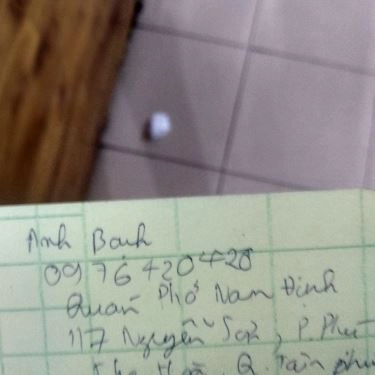 Anh Bách
0976 420 428
Quán Phở Nam Định
117 Nguyễn Sơn, P. Phú
Thọ Hoà, Q. Tân phú